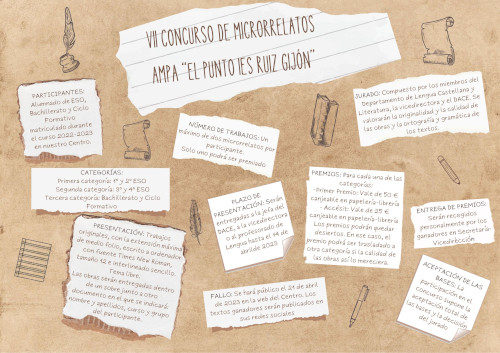 VII CONCURSO DE MICRORRELATOS
AMPA "EL PUNTO IES RUIZ GIJÓN"
PARTICIPANTES:
Alumnado de ESO,
Bachillerato y Ciclo
Formativo
matriculado durante
el curso 2022-2023
en nuestro Centro.
CATEGORÍAS:
Primera categoría: 1º y 2º ESO
Segunda categoría: 3º y 4º ESO
Tercera categoría: Bachillerato y Ciclo
Formativo
PRESENTACIÓN: Trabajos
originales, con la extensión máxima
de medio folio, escrito a ordenador
con fuente Times New Roman,
tamaño 12 e interlineado sencillo.
Tema libre.
Las obras serán entregadas dentro
de un sobre junto a otro
documento en el que se indicará,
nombre y apellidos, curso y grupo
del participante.
NÚMERO DE TRABAJOS: Un
máximo de dos microrrelatos por
participante.
Solo uno podrá ser premiado.
PLAZO DE
PRESENTACIÓN: Serán
entregadas a la jefa del
DACE, a la vicedirectora
o al profesorado de
Lengua hasta el 14 de
abril de 2023
FALLO: Se hará público el 21 de abril
de 2023 en la web del Centro. Los
textos ganadores serán publicados en
sus redes sociales
JURADO: Compuesto por los miembros del
Departamento de Lengua Castellana y
Literatura, la vicedirectora y el DACE. Se
valorarán la originalidad y la calidad de
las obras y la ortografía y gramática de
los textos.
PREMIOS: Para cada una de las
categorías:
-Primer Premio: Vale de 50 €
canjeable en papelería-librería
- Accésit: Vale de 25 €
canjeable en papelería-librería
Los premios podrán quedar
desiertos. En este caso, el
premio podrá ser trasladado a
otra categoría si la calidad de
las obras así lo mereciera.
ENTREGA DE PREMIOS:
Serán recogidos
personalmente por los
ganadores en Secretaría-
Vicedirección
ACEPTACIÓN DE LAS
BASES: La
participación en el
concurso supone la
aceptación total de
las bases y la decisión
del jurado